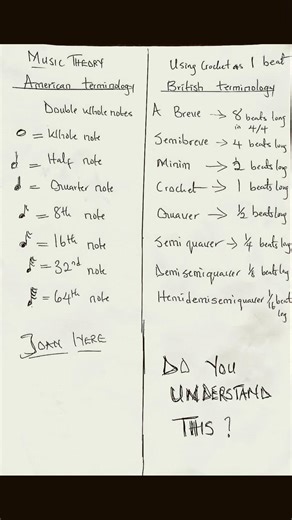 Music Theory
American terminology
Double whole notes
= Whole note
= Half note
= Quarter note
= 8th note
= 16th note
= 32nd note
= 64th note
Joan Iyere
Using Crochet as 1 beat
British terminology
A Breve → 8 beats long
in 4/4
Semibreve → 4 beats long
Minim → 2 beats long
Crochet → 1 beats long
Quaver → 1/2 beats long
Semi quaver → 1/4 beats long
Demisemiquaver 1/8 beats long
Hemidemisemiquaver 1/16 beats
long
DO YOU
UNDERSTAND
THIS?